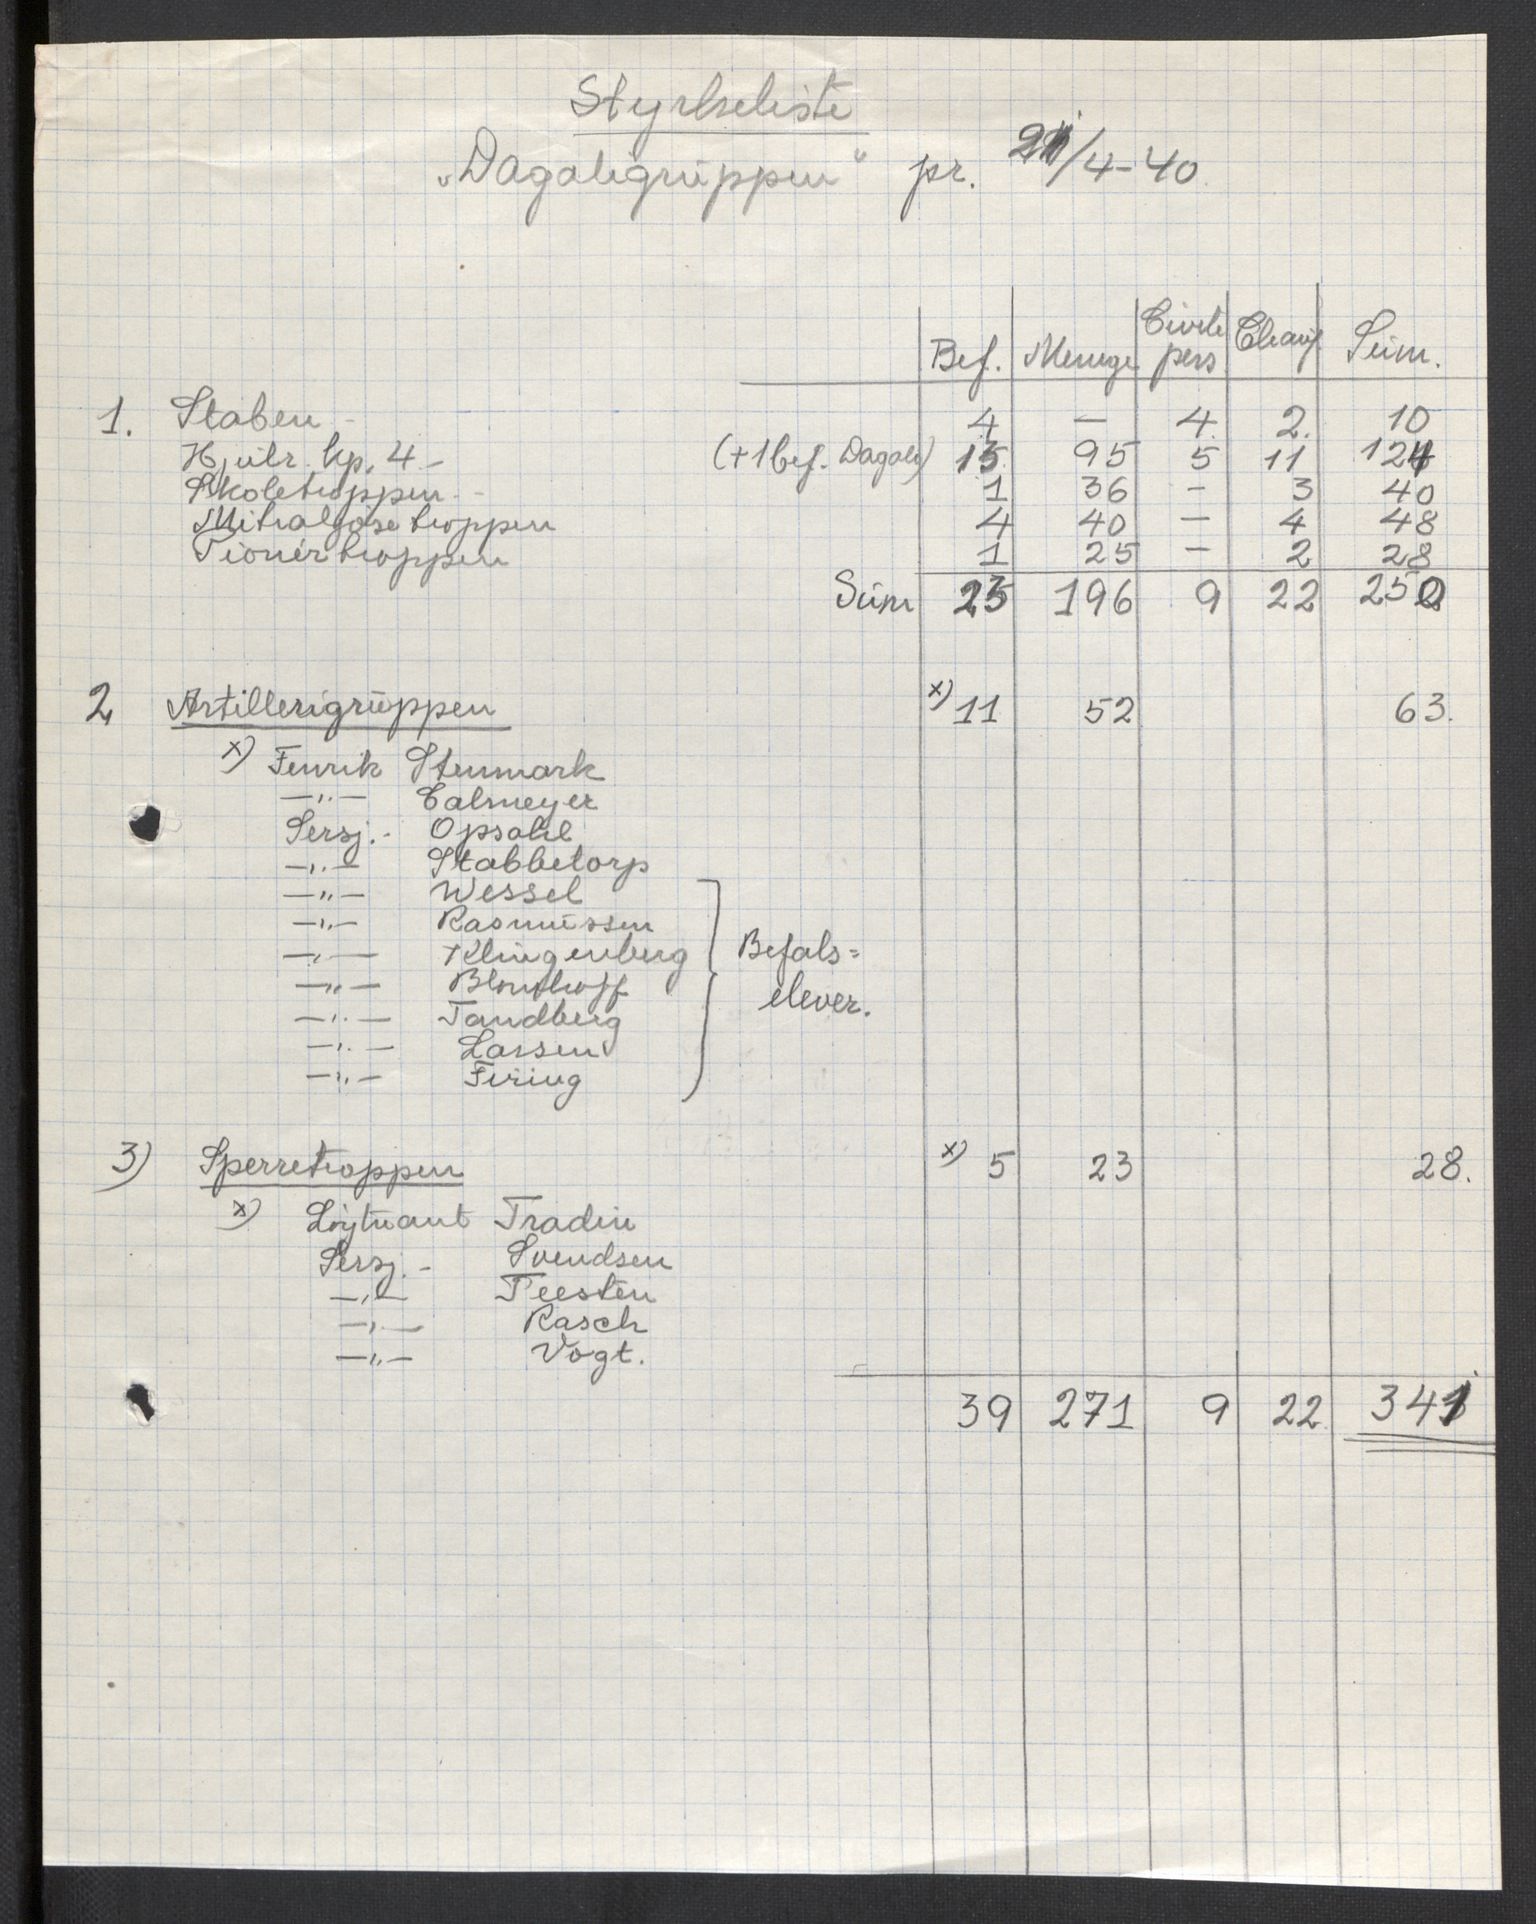 Styrkeliste
„Dagaligruppen“ pr. 21/4-40
Bef. Menige Civile pers Chauf Sum.
1. Staben - 4 — 4. 2. 10
Hjulr. kp. 4 - (+1 bef. Dagali) 13 95 5 11 124
Skoletroppen - 1 36 - 3 40
Mitraljøse troppen 4 40 — 4 48
Pioniér troppen 1 25 - 2 28
Sum 23 196 9 22 250
2 Artillerigruppen x) 11 52 63.
x) Fenrik Stenmark
—"— Calmeyer
Sersj. - Opsahl
—"— Stabbetorp
—"— Wessel
—"— Rasmussen
—"— Klingenberg
Befals=
—"— Blomhoff
elever.
—"— Tandberg
—"— Larsen
—"— Firing
3) Sperretroppen x) 5 23 28.
x) Løjtnant Tradin
Sersj. - Svendsen
—"— Teesten
—"— Rasch
—"— Vogt.
39 271 9 22 341